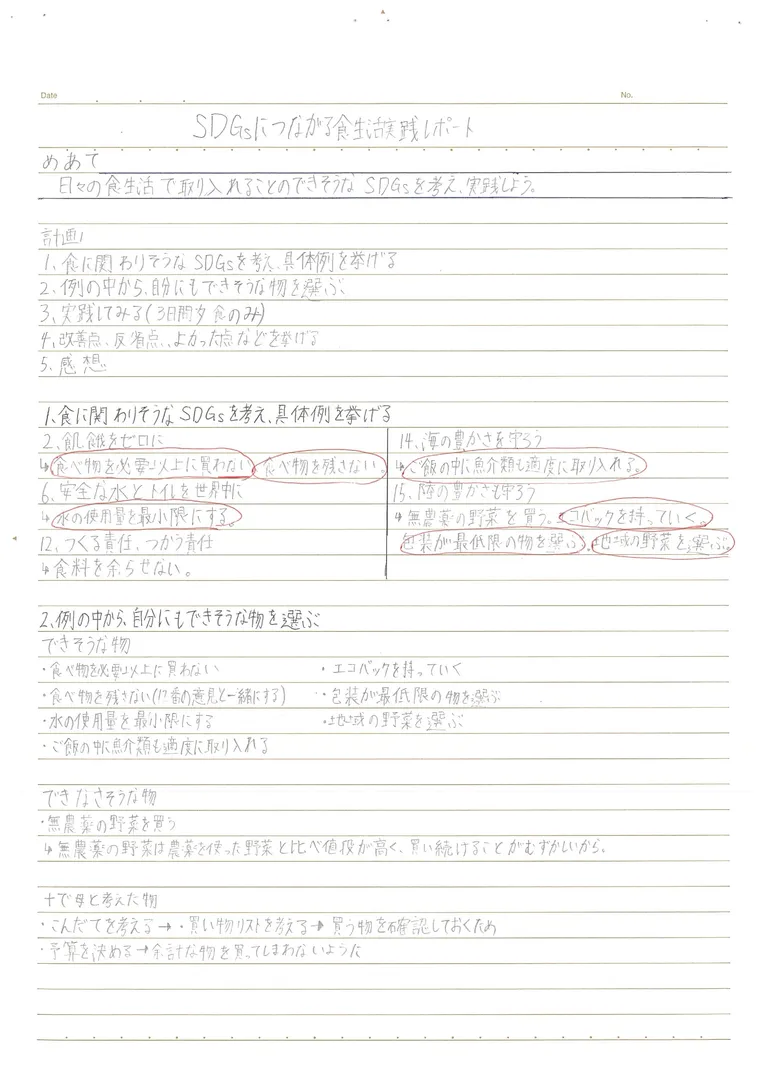 Date
No.
SDGsにつながる食生活実践レポート
めあて
日々の食生活で取り入れることのできそうなSDGsを考え、実践しよう。
計画
1、食に関わりそうなSDGsを考え、具体例を挙げる
2、例の中から、自分にもできそうな物を選ぶ
3、実践してみる(3日間夕食のみ)
4、改善点、反省点、よかった点などを挙げる
5、感想
1、食に関わりそうなSDGsを考え、具体例を挙げる
2、飢餓をゼロに
↳食べ物を必要以上に買わない 食べ物を残さない。
6、安全な水とトイレを世界中に
↳水の使用量を最小限にする。
12、つくる責任、つかう責任
↳食料を余らせない。
14、海の豊かさを守ろう
↳ご飯の中に魚介類も適度に取り入れる。
15、陸の豊かさも守ろう
↳無農薬の野菜を買う。エコバックを持っていく。
包装が最低限の物を選ぶ。地域の野菜を選ぶ。
2、例の中から、自分にもできそうな物を選ぶ
できそうな物
・食べ物を必要以上に買わない
・食べ物を残さない(12番の意見と一緒にする)
・水の使用量を最小限にする
・ご飯の中に魚介類も適度に取り入れる
・エコバックを持っていく
・包装が最低限の物を選ぶ
・地域の野菜を選ぶ
できなさそうな物
・無農薬の野菜を買う
↳無農薬の野菜は農薬を使った野菜と比べ値段が高く、買い続けることがむずかしいから。
+で母と考えた物
・こんだてを考える→・買い物リストを考える→買う物を確認しておくため
・予算を決める→余計な物を買ってしまわないように